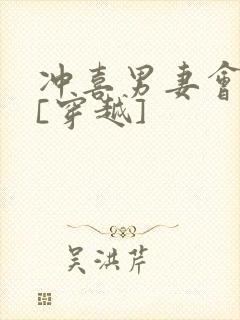 冲喜男妻會
[穿越]
吴洪芹